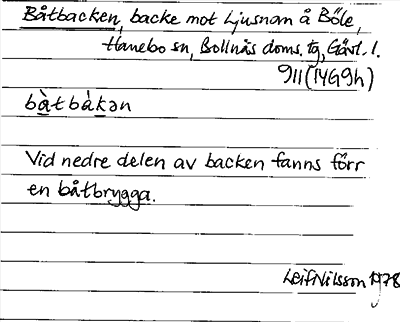 Båtbacken, backe mot Ljusnan å Böle,
Hanebo sn, Bollnäs doms. tg, Gävl. l.
911 (14G9h)
bàtbàkən
Vid nedre delen av backen fanns förr
en båtbrygga.
Leif Nilsson 1978